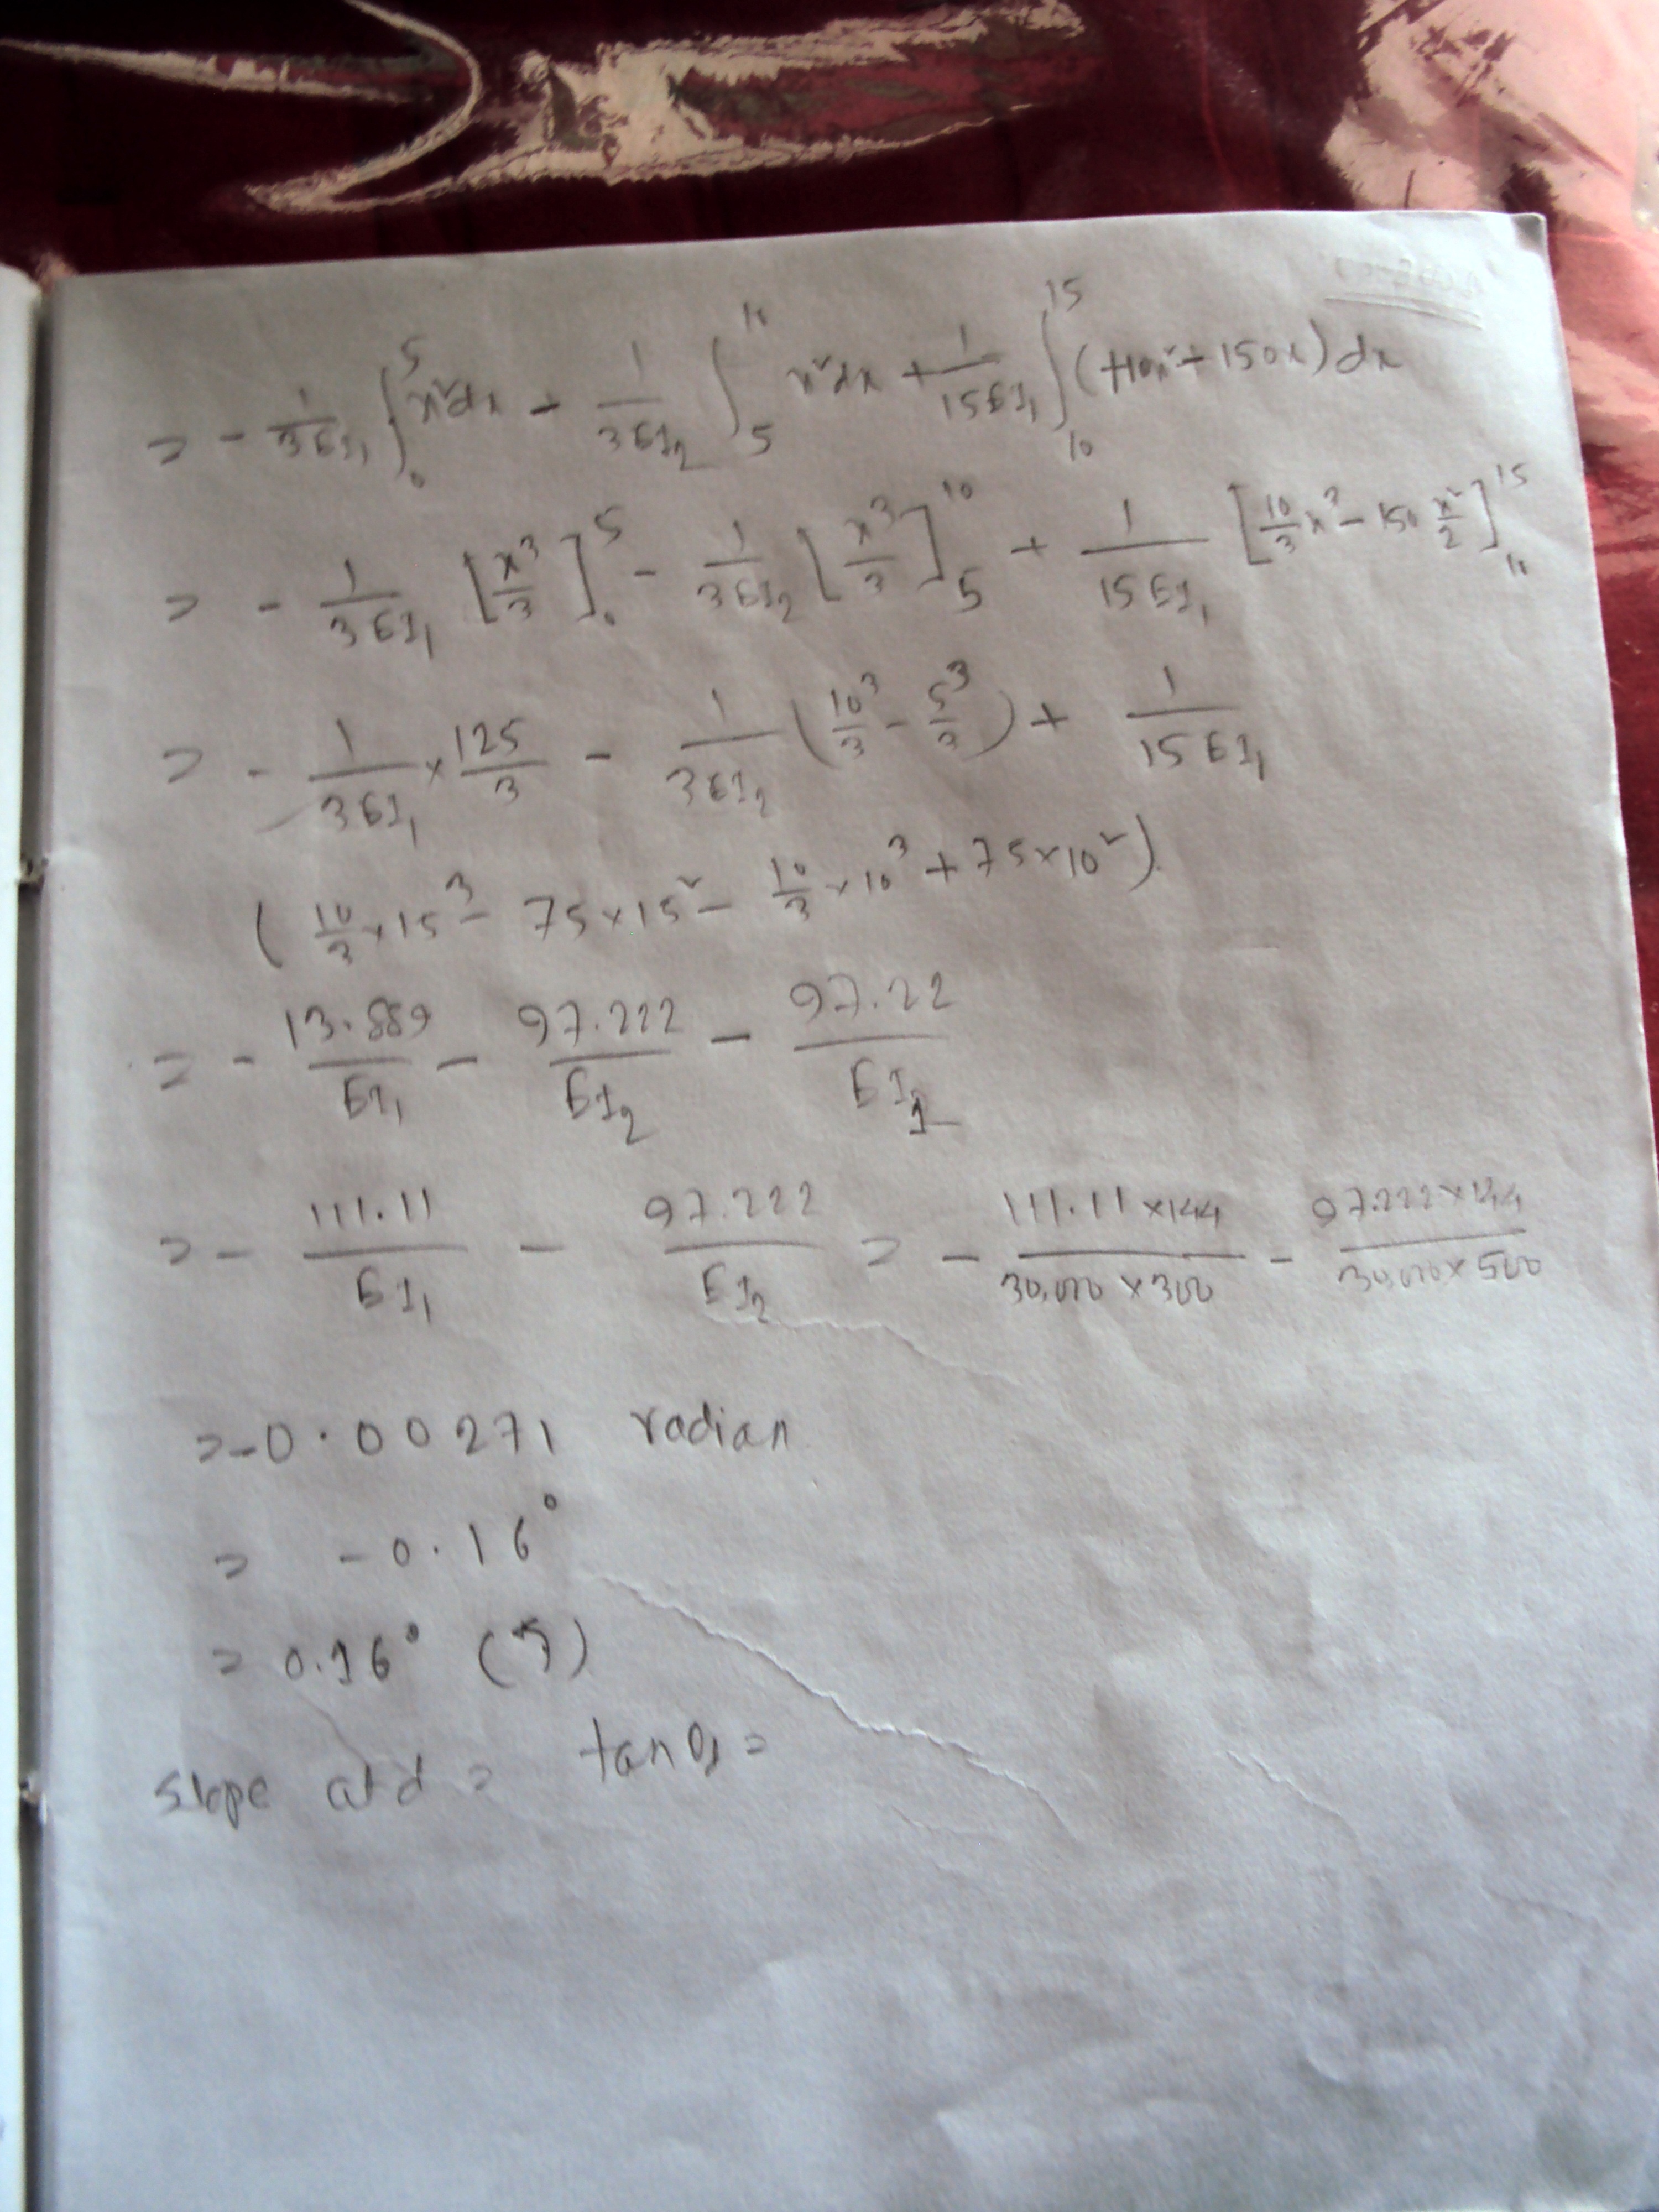 = - 1/3EI₁ ∫₀⁵ x²dx - 1/3EI₂ ∫₅¹⁰ x²dx + 1/15EI₁ ∫₁₀¹⁵ (+10x² + 150x) dx
= - 1/3EI₁ [x³/3]₀⁵ - 1/3EI₂ [x³/3]₅¹⁰ + 1/15EI₁ [10/3 x³ - 150 x²/2]₁₀¹⁵
= - 1/3EI₁ × 125/3 - 1/3EI₂ (10³/3 - 5³/3) + 1/15EI₁
(10/3 × 15³ - 75×15² - 10/3 × 10³ + 75×10²)
= - 13.889/EI₁ - 97.222/EI₂ - 97.22/EI₁
= - 111.11/EI₁ - 97.222/EI₂ = - 111.11×144/30,000×300 - 97.222×144/30,000×500
= -0.00271 radian
= -0.16°
= 0.16° (↰)
Slope at d = tan θ =